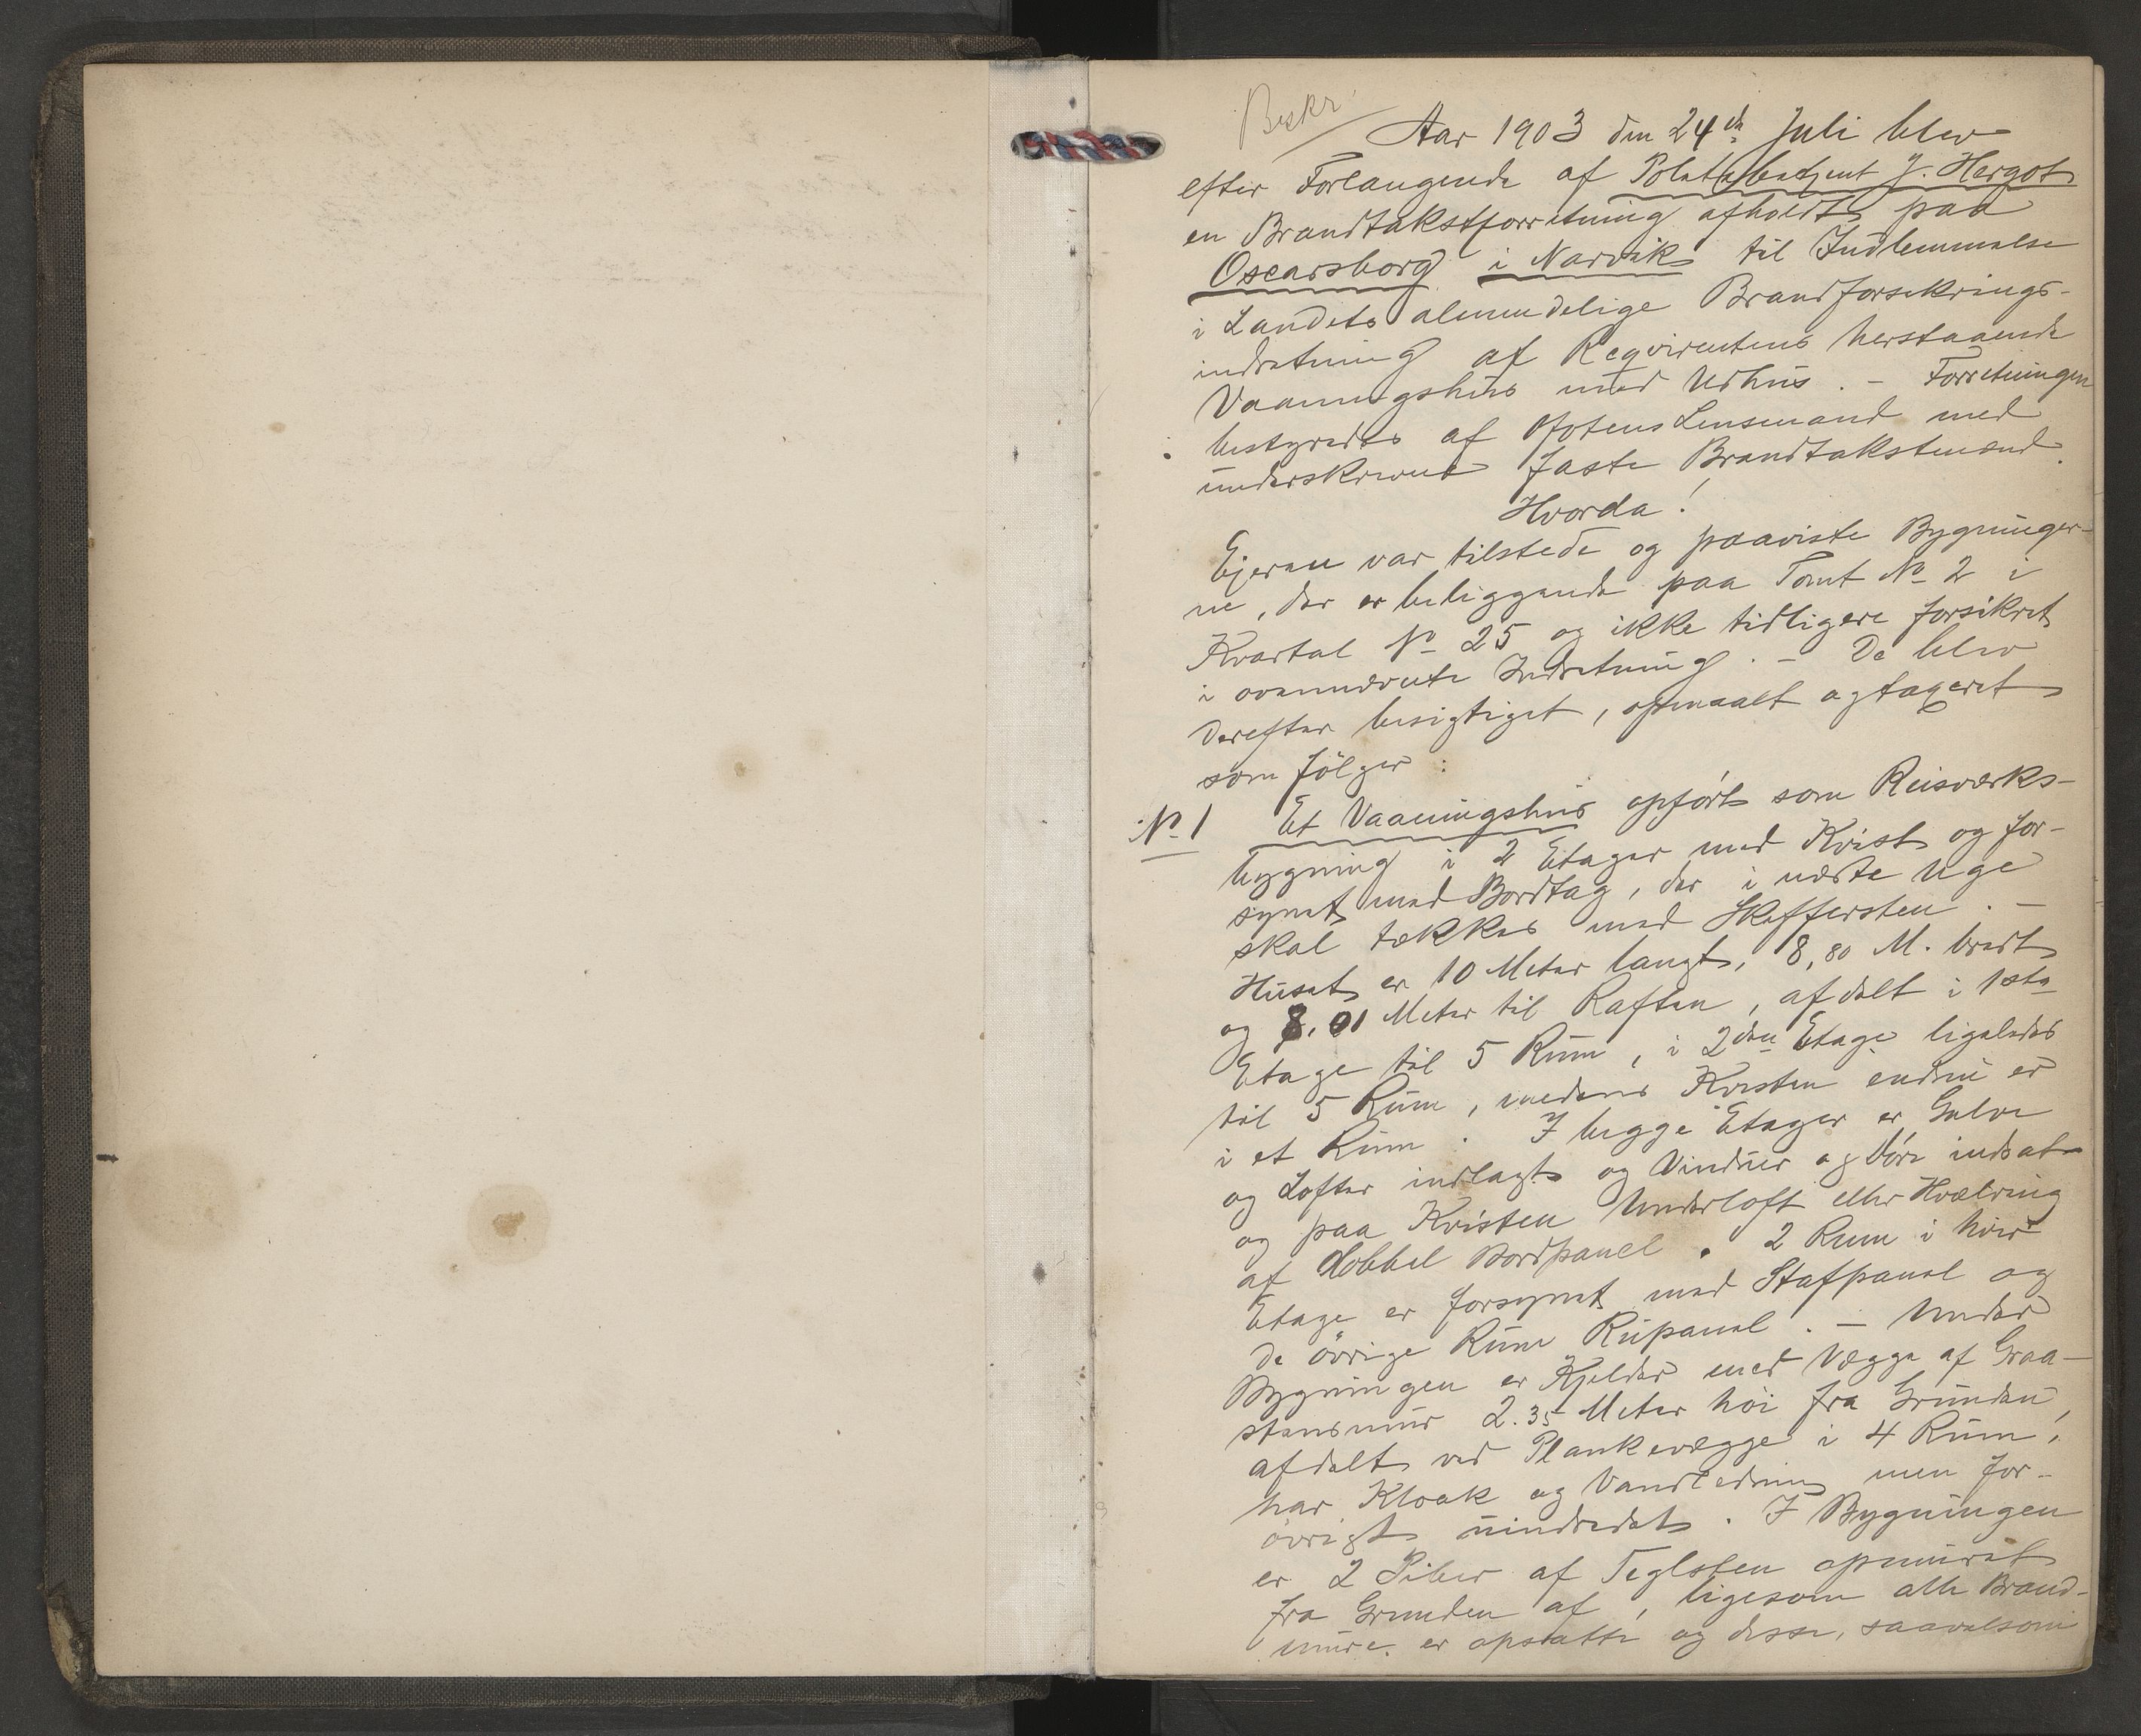 Beskr.
Aar 1903 den 24de Juli blev
efter Forlangende af Politibetjent J. Hergot
en Brandtakstforretning afholdt paa
Oscarsborg i Narvik til Indlemmelse
i Landets almindelige Brandforsikrings-
indretning af Reqvirentens herstaaende
Vaaningshus med Udhus. - Forretningen
bestyredes af Ofotens Lensmand med
underskrevne faste Brandtakstmænd.
Hvorda!
Ejeren var tilstede og paaviste Bygninger-
ne, der er beliggende paa Tomt No 2 i
Kvartal No 25 og ikke tidligere forsikret
i ovennævnte Indretning. - De blev
derefter besigtiget, opmaalt og taxeret
som følger:
No 1 Et Vaaningshus opført som Reisverks-
bygning i 2 Etager med Kvist og for-
synet med Bordtag, der i næste Uge
skal tækkes med Skiffersten. -
Huset er 10 Meter langt, 8,80 M. bredt
og 8.01 Meter til Raften, afdelt i 1ste
Etage til 5 Rum, i 2den Etage ligeledes
til 5 Rum, medens Kvisten endnu er
i et Rum. I begge Etager er Gulve
og Lofter indlagt og Vinduer og Døre indsat
og paa Kvisten Underloft eller Hvælving
af dobbel Bordpanel. 2 Rum i hver
Etage er forsynet med Stafpanel og
de øvrige Rum Rupanel. - Under
Bygningen er Kjelder med Vægge af Graa-
stensmur 2.35 Meter høi fra Grunden,
afdelt ved Plankevægge i 4 Rum,
har Kloak og Vandledning men for-
øvrigt uindredet. I Bygningen
er 2 Piber af Teglsten opmuret
fra Grunden af, ligesom alle Brand-
mure er opsatte og disse, saavelsom